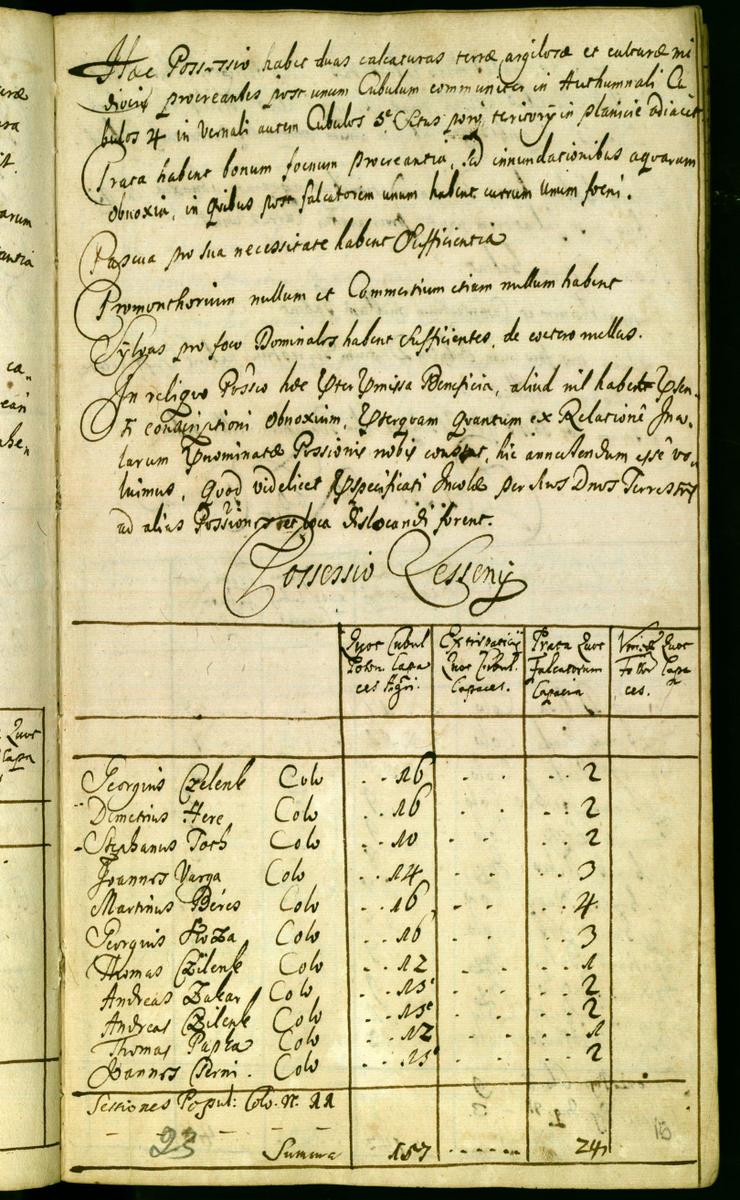 Hæc Possessio habet duas calcaturas terræ argilosæ et culturæ mi
divisi procreantes post unum Cubulum communiter in Authumnali Cu
bulos 4 in Vernali autem Cubulos 5 Situs in planicie adiacet
Prata habent bonum foenum procreantia, sed innundationibus aquarum
obnoxia, in quibus post falcatorem unum habent currum unum foeni.
Pascua pro sua necessitate habent Sufficientia
Promonthorium nullum et Commertium etiam nullum habent
Sylvas pro foco Dominales habent sufficientes, de coetero nullus.
In reliquo Possio hæc Beneficia, aliud nil habent
conscriptioni obnoxium, quantum ex Relatione Inco„
larum Possionis nobis constat, hic annectendum esse vo„
luimus, quod videlicet Incolæ per suos Dnos Terrestres
ad alias Possiones et loca dislocandi forent.
Possessio Lesseny
Quot Cubul Poson. Capa ces Agri. | Extirpaticii Quot Cubul. Capaces. | Prata Quot Falcatorum Capacia | Quot Capa ces.
Georgius Czelenk Colo . . 16 . . . . 2
Demetrius Here Colo . . 16 . . . . 2
Stephanus Toth Colo . . 10 . . . . 2
Joannes Varga Colo . . 14 . . . . 3
Martinus Béres Colo . . 16 . . . . 4
Georgius Colo . . 16 . . . . 3
Thomas Czilenk Colo . . 12 . . . . 1
Andreas Zakar Colo . . 15 . . . . 2
Andreas Czilenk Colo . . 15 . . . . 2
Thomas Colo . . 12 . . . . 1
Joannes Colo . . 15 . . . . 2
Sessiones Popul: Colo. Nr. 11
23 Summa 157 . . . . . . 24